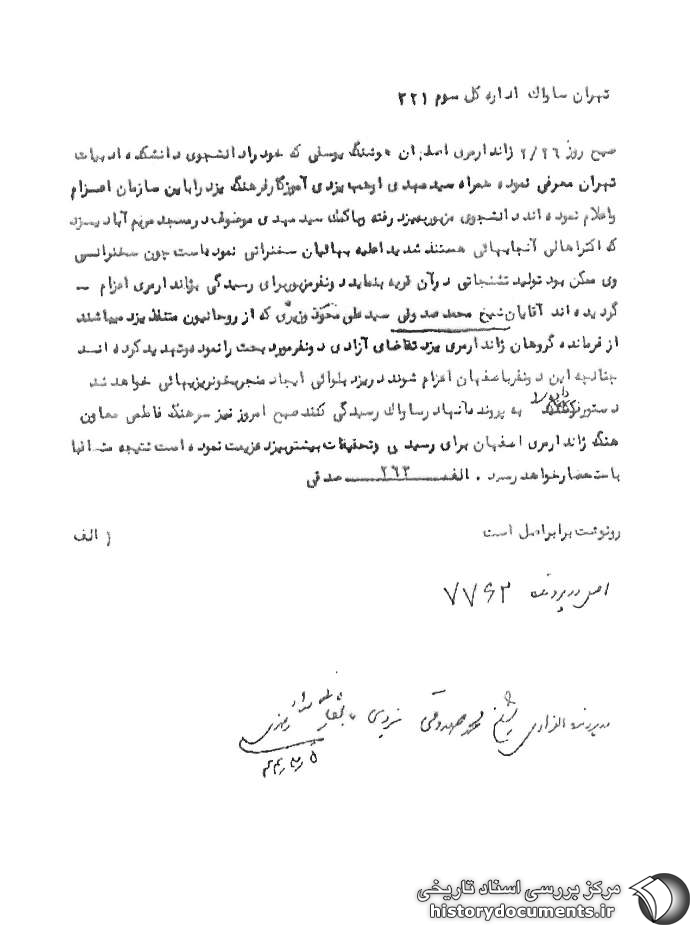 تهران ساواك اداره كل سوم ۳۲۱
صبح روز ۲/۲۶ ژاندارمری اصفهان هوشنگ یوسفی که خود را دانشجوی دانشکده ادبیات
تهران معرفی نموده همراه سید مهدی یزدی آموزگار فرهنگ یزد را باین سازمان اعزام
و اعلام نموده اند دانشجوی مزبور بیزد رفته و بکمک سید مهدی موصوف در مسجد مریم آباد یزد
که اکثر اهالی آنجا بهائی هستند شدیدا علیه بهائیان سخنرانی نموده است چون سخنرانی
وی ممکن بود تولید تشنجاتی در آن قریه بنماید دو نفر مزبور برای رسیدگی بژاندارمری اعزام –
گردیده اند آقایان شیخ محمد صدوقی سید علی محمد وزیری که از روحانیون متنفذ یزد میباشند
از فرمانده گروهان ژاندارمری یزد تقاضای آزادی دو نفر مورد بحث را نموده و تهدید کرده اند
چنانچه این دو نفر باصفهان اعزام شوند در یزد بلوائی ایجاد منجر بخونریزیهائی خواهد شد
دستور داده شد به پرونده آنها در ساواك رسیدگی کنند صبح امروز نیز سرهنگ فاطمی معاون
هنگ ژاندارمری اصفهان برای رسیدگی و تحقیقات بیشتر بیزد عزیمت نموده است نتیجه متعاقبا
باستحضار خواهد رسید . الف ۲۶۳ صدقی
رونوشت برابر اصل است ژ الف
اصل در پرونده ۷۷۶۲
در پرونده انفرادی شیخ محمد صدوقی یزدی
مرکز بررسی اسناد تاریخی
historydocuments.ir